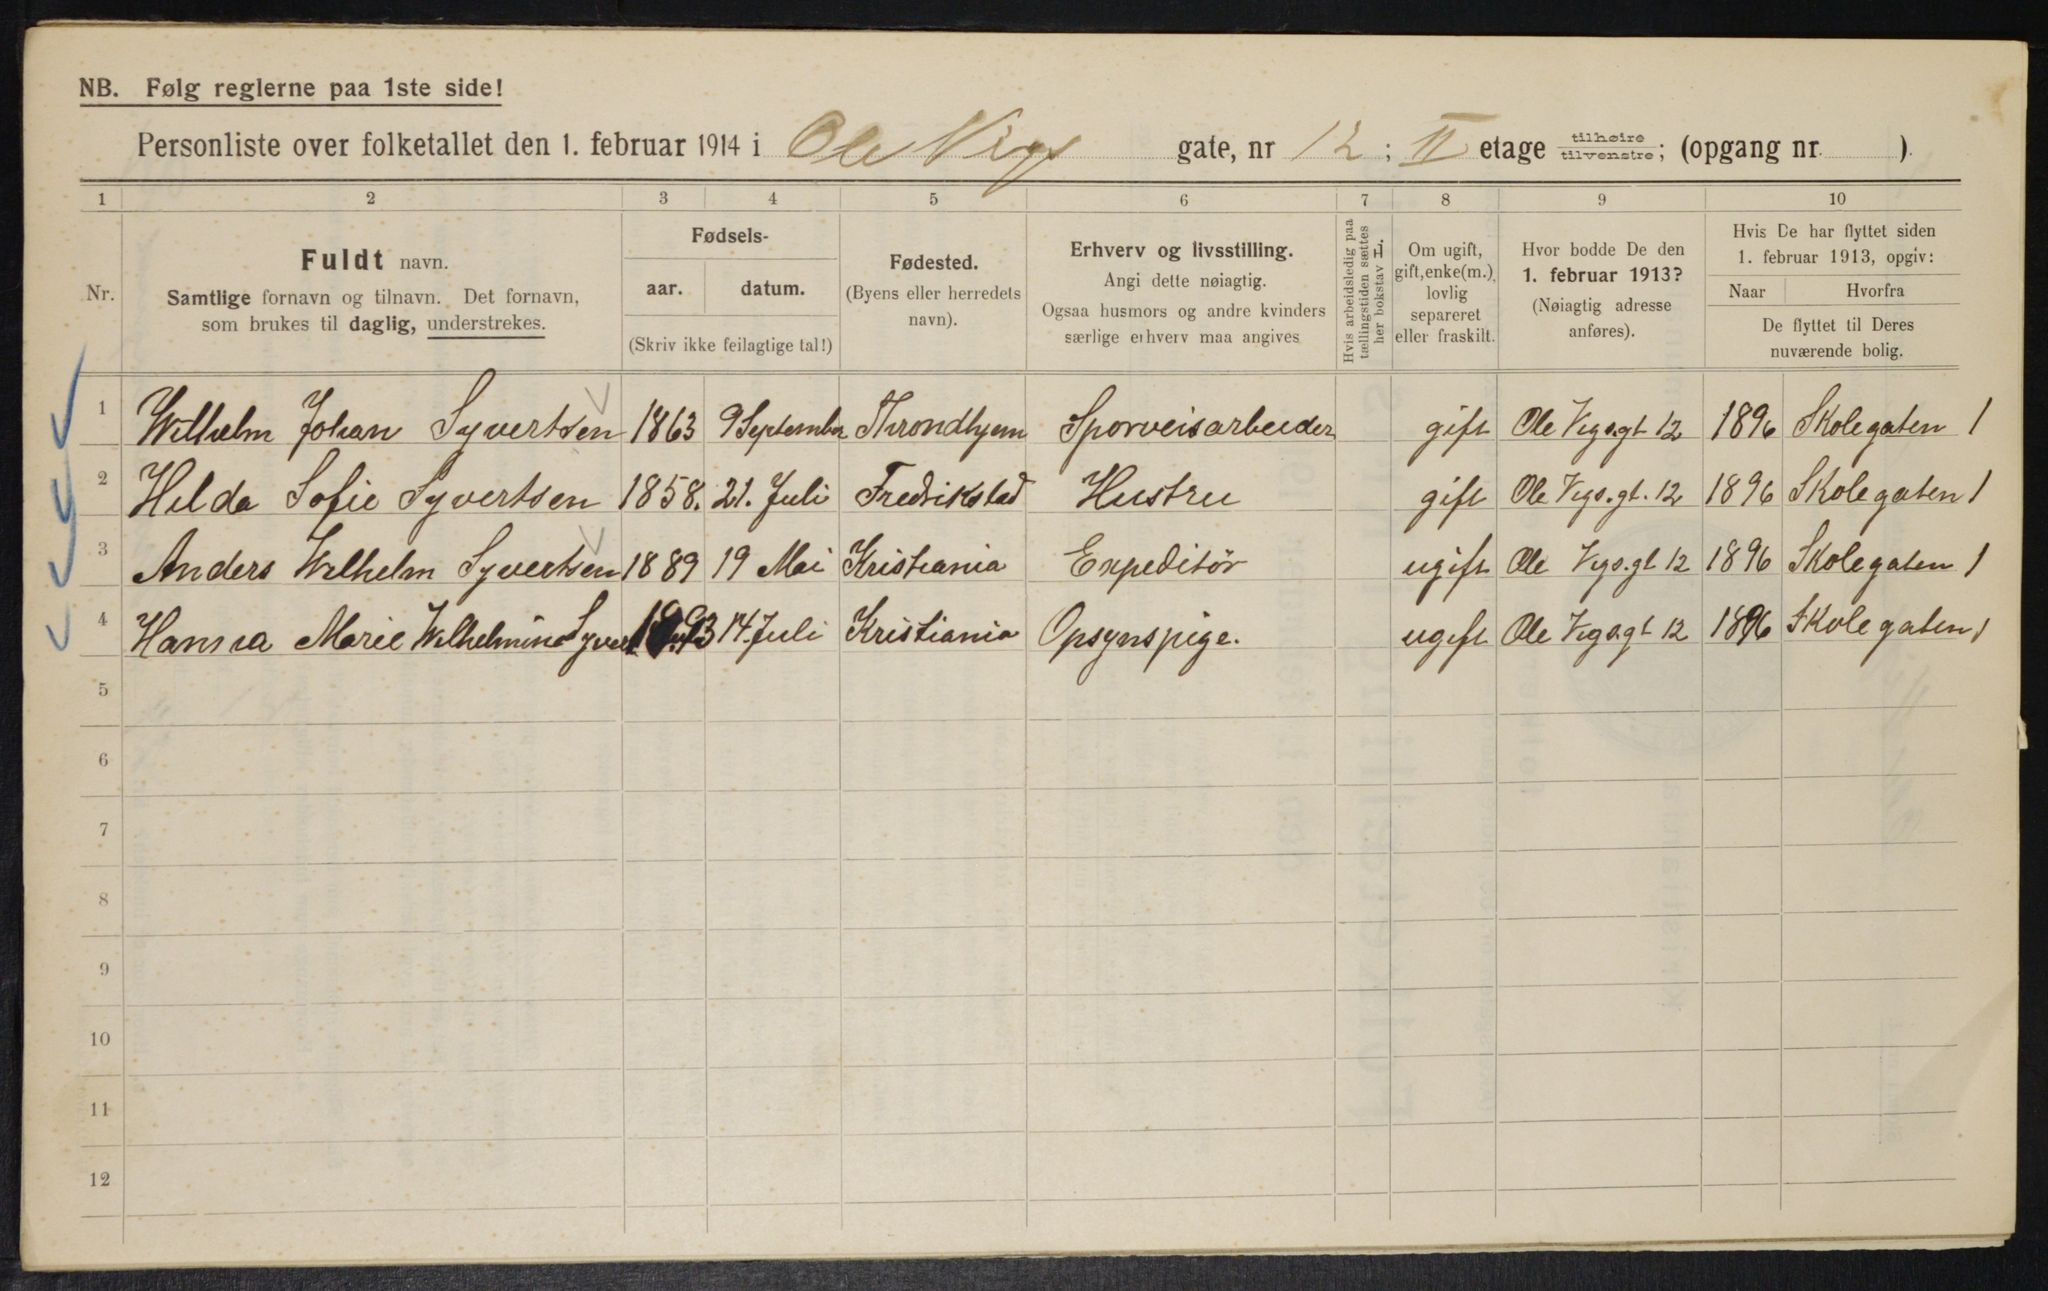 NB. Følg reglerne paa 1ste side!
Personliste over folketallet den 1. februar 1914 i Ole Vigs gate, nr 12; II etage tilhøire/tilvenstre; (opgang nr ).
1 2 3 4 5 6 7 8 9 10
Nr.
Fuldt navn.
Samtlige fornavn og tilnavn. Det fornavn,
som brukes til daglig, understrekes.
Fødsels-
aar. datum.
(Skriv ikke feilagtige tal!)
Fødested.
(Byens eller herredets
navn).
Erhverv og livsstilling.
Angi dette nøiagtig.
Ogsaa husmors og andre kvinders
særlige erhverv maa angives
Hvis arbeidsledig paa
tællingstiden sættes
her bokstav L.
Om ugift,
gift, enke(m.),
lovlig
separeret
eller fraskilt.
Hvor bodde De den
1. februar 1913?
(Nøiagtig adresse
anføres).
Hvis De har flyttet siden
1. februar 1913, opgiv:
Naar Hvorfra
De flyttet til Deres
nuværende bolig.
1 Wilhelm Johan Syvertsen 1863 9 September Throndhjem Sporveisarbeider gift Ole Vigs.gt 12 1896 Skolegaten 1
2 Hilda Sofie Syvertsen 1858. 21. Juli Fredrikstad Hustru gift Ole Vigs.gt. 12 1896 Skolegaten 1
3 Anders Wilhelm Syvertsen 1889 19 Mai Kristiania Expeditør ugift Ole Vigs.gt 12 1896 Skolegaten 1
4 Hanna Marie Wilhelmine Syvert 1893 14. Juli Kristiania Opsynspige. ugift Ole Vigs.gt 12 1896 Skolegaten 1
5
6
7
8
9
10
11
12